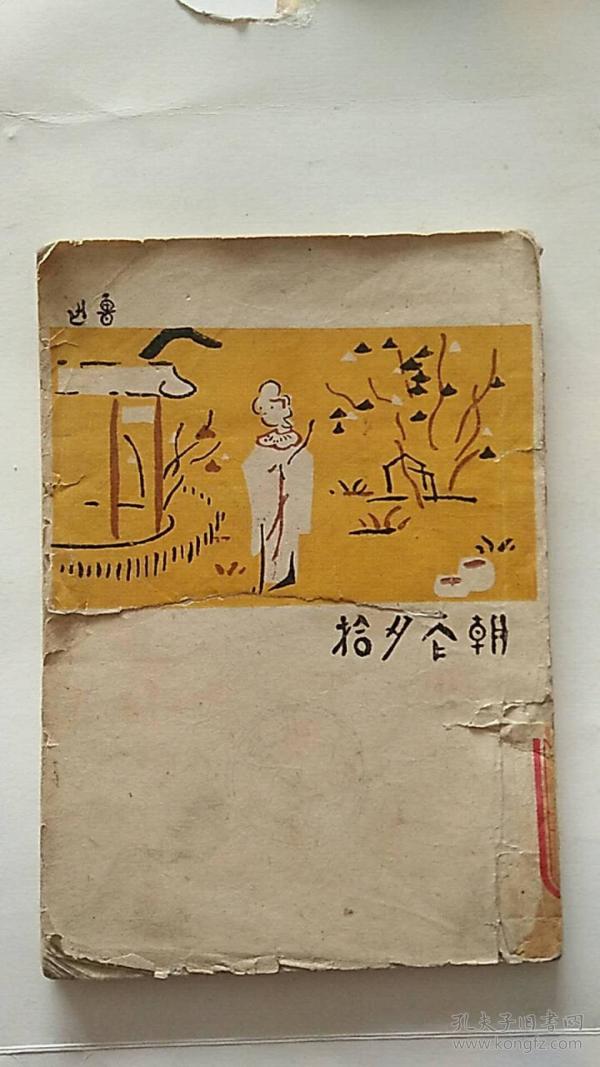 魯迅
朝华夕拾
孔夫子旧书网
www.kongfz.com